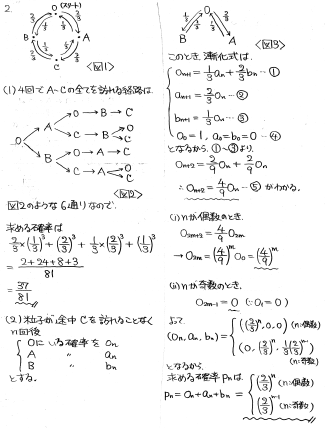 2.
O (スタート)
2/3 1/3 1/3 2/3
B A
C
<図1>
(1) 4回でA~Cの全てを訪れる経路は
O → A → O → B → C
C → B → O
C
B → O → A → C
C → A → O
C
<図2>
図2のような6通りなので、
求める確率は
= (2+24+8+3)/81
= 37/81
(2) 粒子が途中Cを訪れることなく
n回後
{ Oにいる確率を On
A 〃 an
B 〃 bn
とする。
O
B A
<図3>
このとき、漸化式は、
On+1 = 1/3 an + 2/3 bn … ①
an+1 = 2/3 On … ②
bn+1 = 1/3 On … ③
O0 = 1, a0 = b0 = 0 … ④
となるから、①~③より、
On+2 = 2/9 On + 2/9 On
∴ On+2 = 4/9 On … ⑤ がわかる。
(i) nが偶数のとき、
O2m+2 = 4/9 O2m
→ O2m = (4/9)^m O0 = (4/9)^m
(ii) nが奇数のとき、
O2m-1 = 0 (∵ O1 = 0)
よって
(On, an, bn) = { ((2/3)^n, 0, 0) (n:偶数)
(0, (2/3)^n, 1/3 (2/3)^n-1) (n:奇数)
となるから
求める確率 Pn は
Pn = On + an + bn = { (2/3)^n (n:偶数)
(2/3)^n-1 (n:奇数)